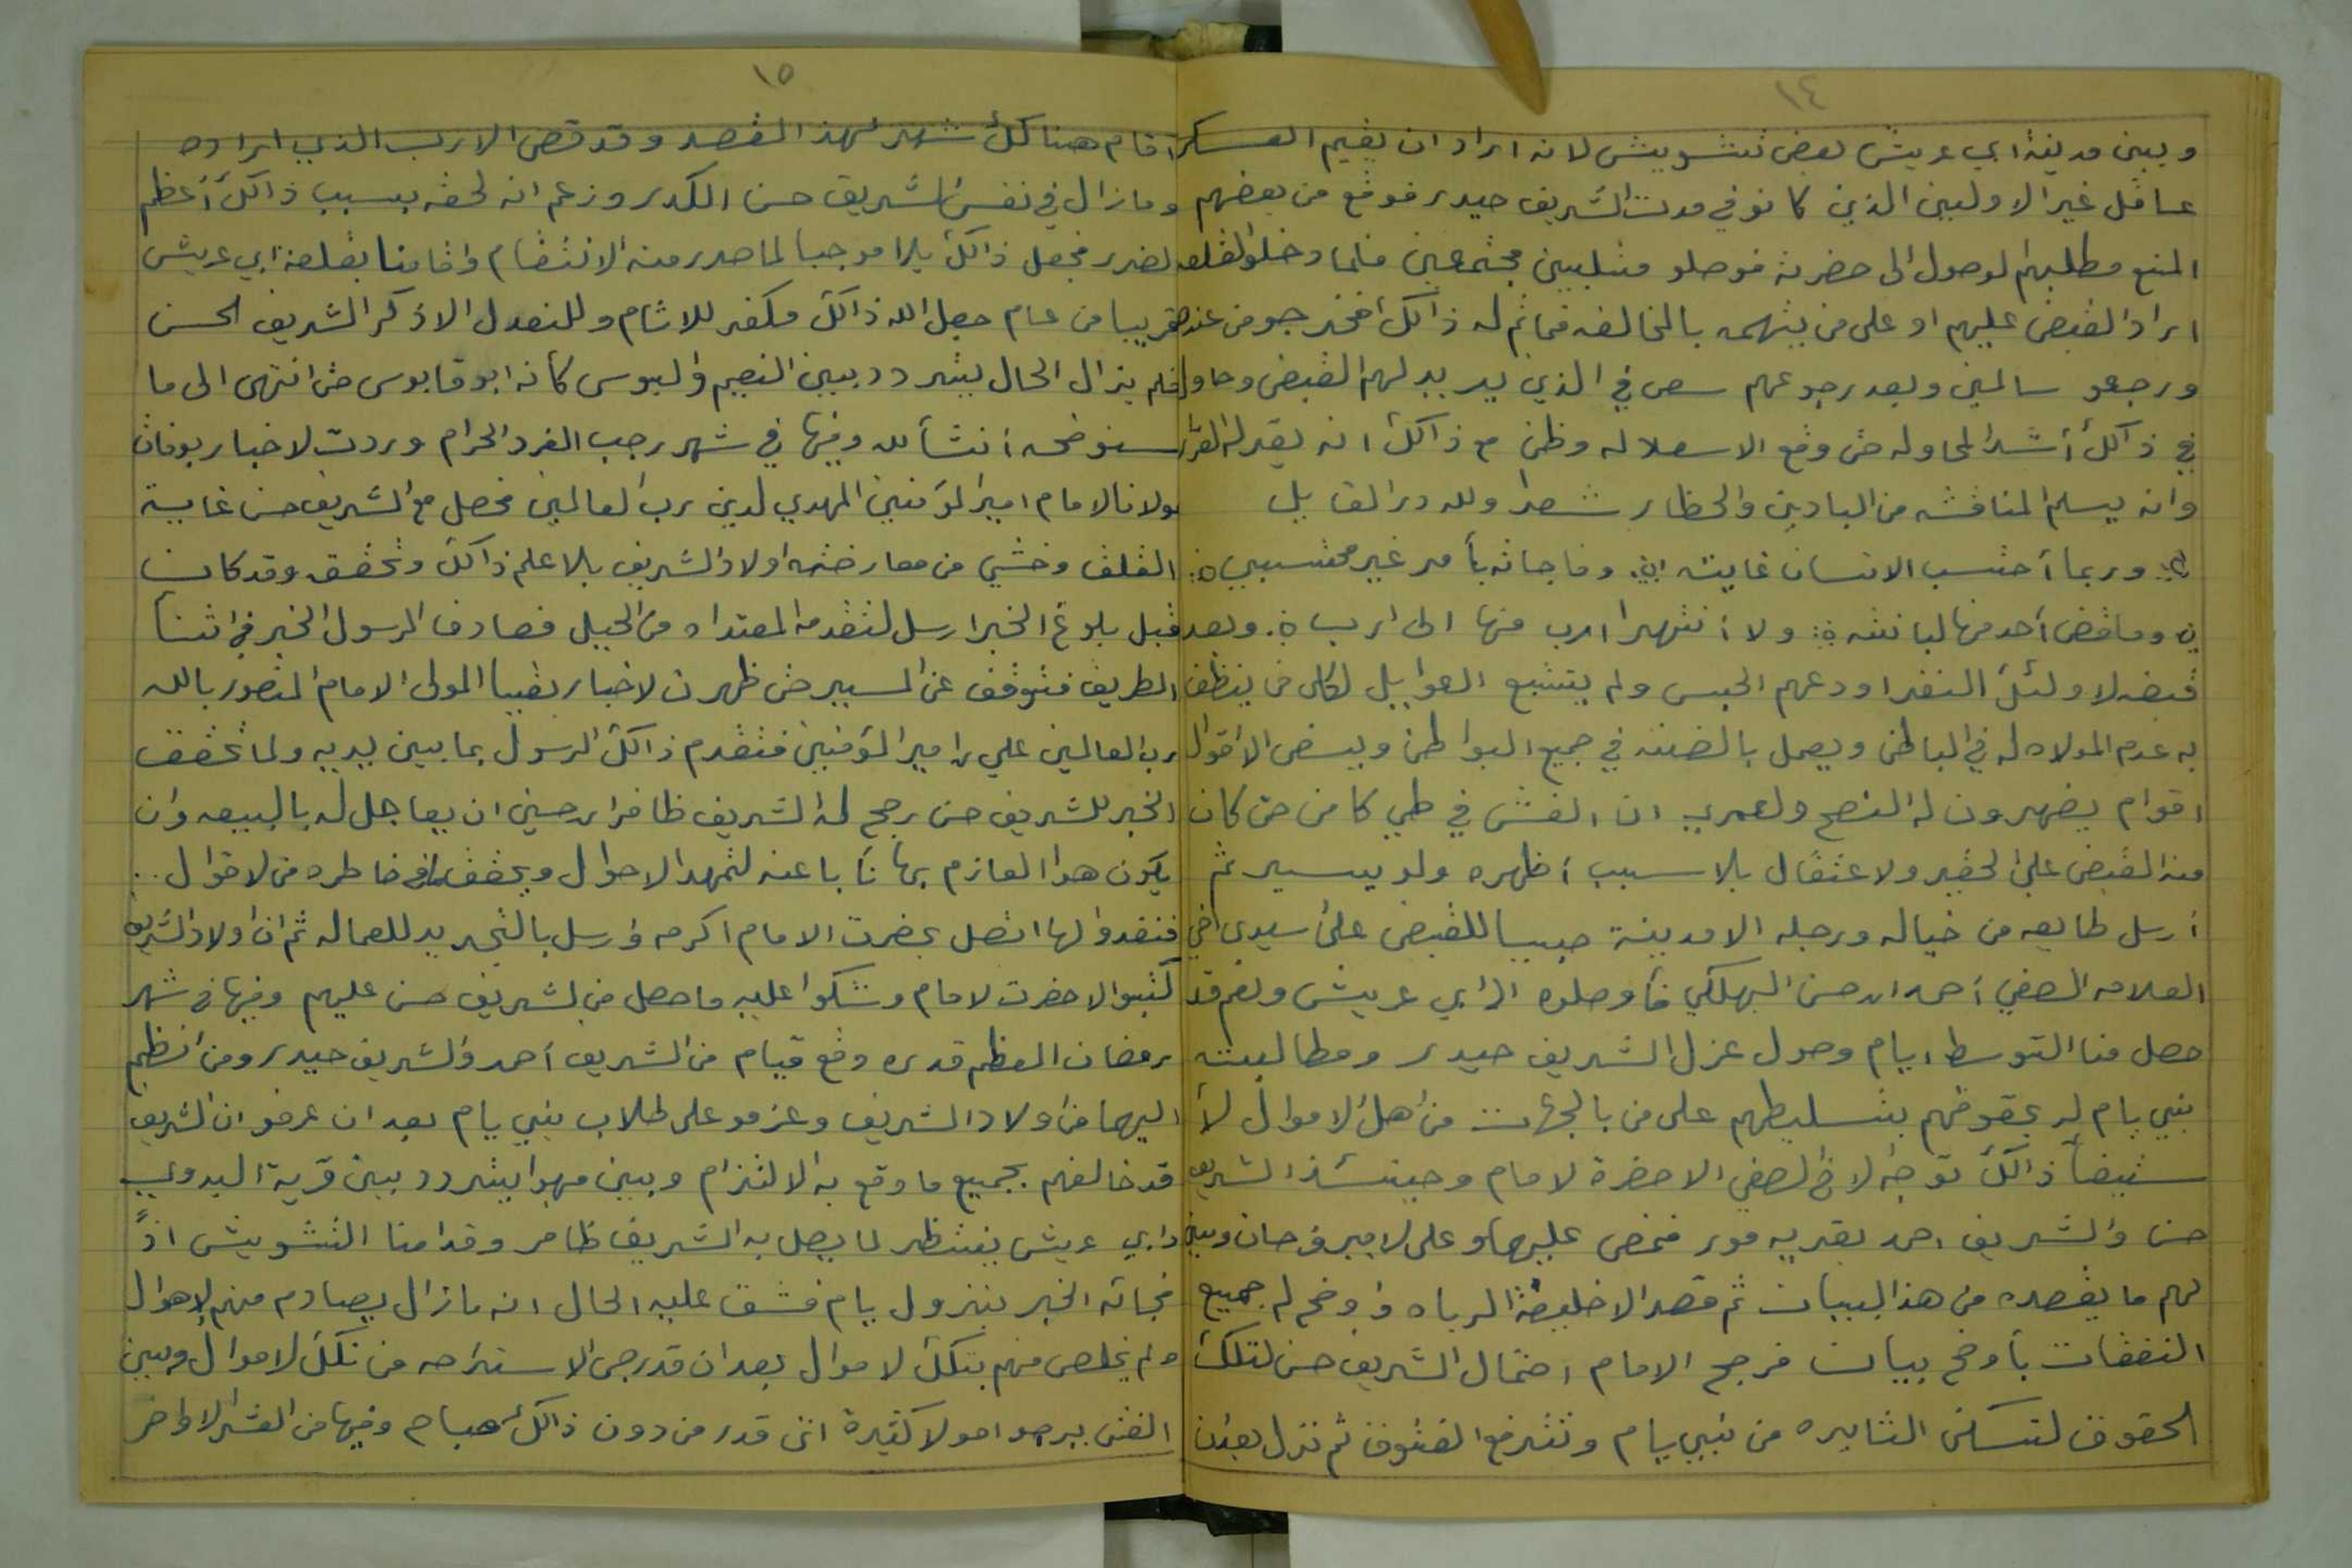 ١٤
وبين مدينة ابي عريش بعض تشويش لانه اراد ان يقيم العسكر
عاقل غير الاولين الذين كانو في مدت الشريف حيدر فوقع من بعضهم
المنع مطلبهم الوصول الى حضرته فوصلو متلبين مجتمعين فلما دخلو القلعه
اراد القبض عليهم او على من يتهمه بالمخالفه فماتم له ذالك فخرجو من عنده
ورجعو سالمين وبعد رجوعهم سعى في الذي يريد لهم القبض وحاول
في ذالك أشد المحاوله حتى وقع الاسعلاله وظن مع ذالك انه يقر له القرار
وانه يسلم المناقشه من البادين والحظار شعرا ولله در القايل
وربما أحتسب الانسان غايته وفاجاته بأمر غير محتسبي
وماقضى أحد منها لبانته ولا أنتهى ارب منها الى ارب وبعد
قبضه لاولئك النفر اودعهم الحبس ولم يتتبع العوايل لكل من ينظف
به عدم المولاه له في الباطن ويعمل بالضنه في جميع البواطن ويسعى الأقوال
اقوام يضهرون له النصح ولعمري ان الغش في طي كامن حتى كان
منه القبض على الحقير ولاعتقال بلا سبب أظهره ولو يسير ثم
أرسل طايعه من خياله ورجله الا مدينة صبيا للقبض على سيدي اخي
العلامه الصفي أحمد ابن حسن البهلكي فأوصلوه الى ابي عريش ونعم قد
حصل منا التوسط ايام وصول عزل الشريف حيدر ومطالبته
بني يام له بحقوقهم بتسليطهم على من بالجهات من اهل الاموال لأ
ستيضآ ذالك توجه لاخ الصفي الا حضرة لامام وحينئذ الشريف
حسن والشريف احمد بقريه مور فمضى عليهما وعلى لامير فرحان وبين
لهم ما يقصده من هذا البيان ثم قصد الا خليفة الرباه واوضح له جميع
النفقات بأوضح بيان فرجح الامام احتمال الشريف حسن لتلك
الحقوق لتسكن الثايره من بني يام وتترفع الفتوق ثم نزل بعدن
١٥
اقام هنالك شهر لهذ القصد وقد قضى الارب الذي اراده
ومازال في نفس الشريف حسن الكدر وزعم انه لحقه بسبب ذالك أعظم
لضرر فجعل ذالك بلا موجبا لما صدر منه الانتقام واقامنا بقلعة ابي عريش
قريبا من عام جعل الله ذالك مكفر للاثام وللنعدل الا ذكر الشريف الحسن
فلم يزال الحال يتردد بين النعيم والبوس كانه ابو قابوس حتى انتهى الى ما
سنوضحه أنشأ لله وفيها في شهر رجب الفرد الحرام وردت لاخبار بوفات
مولانا الامام امير المؤمنين المهدي لدين رب العالمين فحصل مع الشريف حسن غاية
القلق وخشي من معارضته اولاد الشريف بلا علم ذالك وتحقق وقد كان
قبل بلوغ الخبر ارسل لتقدمه المعتداه من الحيل فصادف الرسول الخبر في اثنا
الطريق فتوقف عن السير حتى ظهرت لاخبار بقيا المولى الامام المنصور بالله
رب العالمين علي بن امير المؤمنين فتقدم ذالك الرسول بما بين يديه ولما تحقق
الخبر للشريف حسن رجح له الشريف ظافر ابن حسين ان يعاجل له بالبيعه وان
يكون هوا العازم بها نأبا عنه لتمهد الاحوال ويحقق مافي خاطره من لاقوال
فتقدو لها اتصل بحضرت الامام اكرمه وارسل بالتجديد للعماله ثم ان اولاد الشريف
كتبو الا حضرت لامام وشكوا عليه ماحصل من الشريف حسن عليهم وفيها في شهر
رمضان المعظم قدره وقع قيام من الشريف أحمد والشريف حيدر ومن انظم
اليهما من اولاد الشريف وعزمو على طلاب بني يام بعد ان عرفو ان الشريف
قد خالفهم بجميع ماوقع به الالتزام وبين مهوا يتردد بين قرية البدوي
وابي عريش ينتظر لما يصل به الشريف ظافر وقد امنا التشويش اذ
فجاته الخبر بنزول يام فشق عليه الحال انه مازال يصادم منهم لاهوال
ولم يخلص منهم بتلك لاموال بعد ان قد رجى الاستراحه من تلك لاموال وبين
الفتى يرجو امولا كثيرة اتى قدر من دون ذالك مباح وفيها من العشر الاواخر